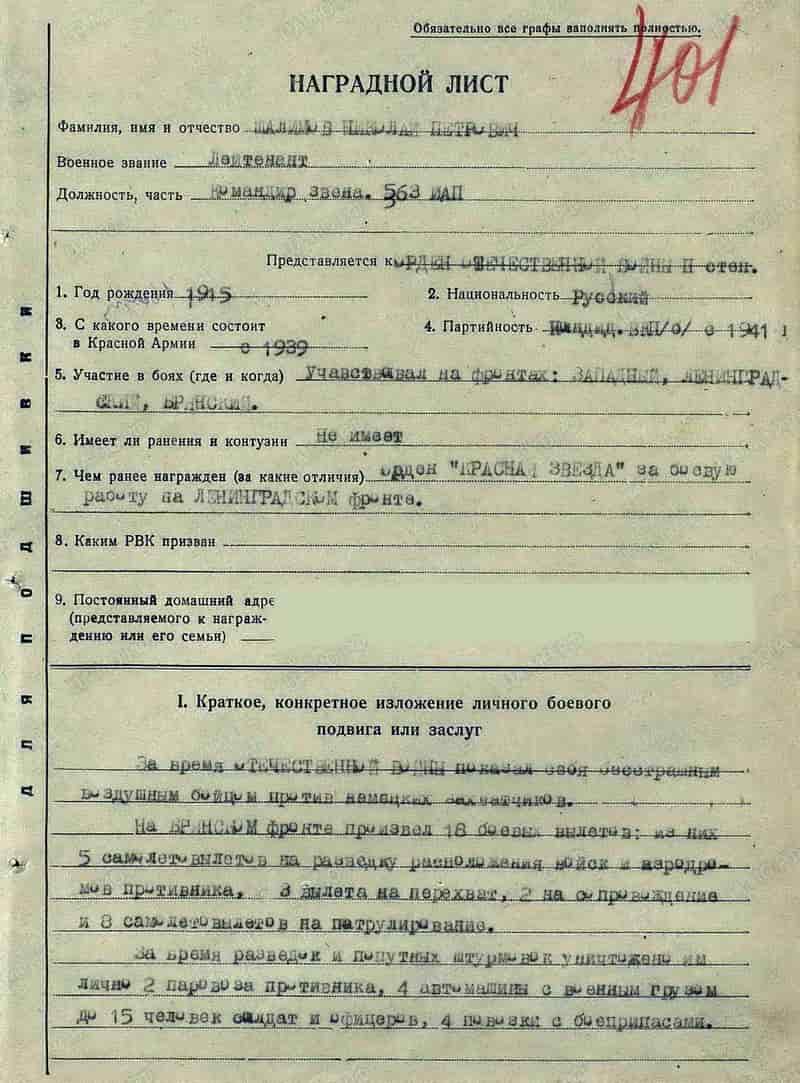 Обязательно все графы заполнять полностью.
401
НАГРАДНОЙ ЛИСТ
Фамилия, имя и отчество ПЕТРОВИЧ
Военное звание Лейтенант
Должность, часть Командир звена. 563 ИАП
Представляется к ОРДЕН ОТЕЧЕСТВЕННОЙ ВОЙНЫ II степ.
1. Год рождения 1915
2. Национальность Русский
3. С какого времени состоит
в Красной Армии с 1939
4. Партийность Канд. ВКП/б/ с 1941
5. Участие в боях (где и когда) Участвовал на фронтах: ЗАПАДНЫЙ, ЛЕНИНГРАД-
СКИЙ, БРЯНСКИЙ.
6. Имеет ли ранения и контузии Не имеет
7. Чем ранее награжден (за какие отличия) орден "КРАСНАЯ ЗВЕЗДА" за боевую
работу на ЛЕНИНГРАДСКОМ фронте.
8. Каким РВК призван
9. Постоянный домашний адре
(представляемого к награж-
дению или его семьи)
I. Краткое, конкретное изложение личного боевого
подвига или заслуг
За время ОТЕЧЕСТВЕННОЙ ВОЙНЫ показал себя бесстрашным
воздушным бойцом против немецких захватчиков.
На БРЯНСКОМ фронте произвел 18 боевых вылетов: из них
5 самолетовылетов на разведку расположения войск и аэродро-
мов противника, 3 вылета на перехват, 2 на сопровождение
и 8 самолетовылетов на патрулирование.
За время разведок и попутных штурмовок уничтожено им
лично 2 паровоза противника, 4 автомашины с военным грузом
до 15 человек солдат и офицеров, 4 повозки с боеприпасами.